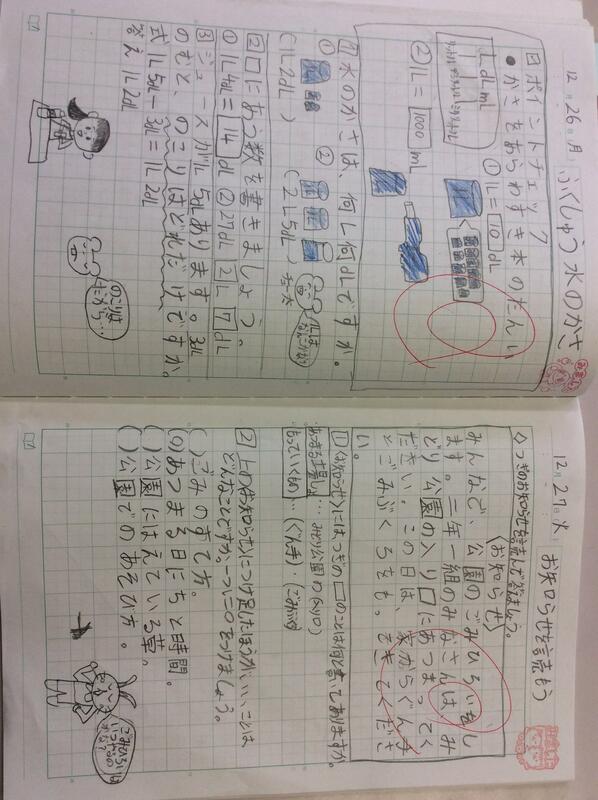 12月26日月
ふくしゅう 水のかさ
□ポイントチェック
●かさをあらわすき水のたんい
L dL mL
リットル デシリットル ミリリットル
①1L=10dL
②1L=1000mL
1 水のかさは、何L何dLですか。
①
(1L2dL)
②
(2L5dL)
2 □にあう数を書きましょう。
①1L4dL=14dL ②27dL 2L 7dL
3 ジュースが1L5dLあります。3dL
のむと、のこりはどれだけですか。
式1L5dL-3dL=1L2dL
答え1L2dL
のこりは
だから…
12月27日火
お知らせを読もう
◇つぎのお知らせを読んで答えましょう。
〈お知らせ〉
みんなで、公園のごみひろいをし
ます。二年一組のみなさんは、み
どり公園の入り口にあつまってく
ださい。この日は、家からぐん手
とごみぶくろをも。てきてくださ
い。
1 〈お知らせ〉には、つぎの□のことは何と書いてありますか。
あつまる場しょ…みどり公園の(入り口)
もっていくもの…(ぐん手)・(ごみぶくろ)
2 上のお知らせにつけ足したほうがいいことは
どんなことですか。一つに○をつけましょう。
( )ごみのすて方。
(○)あつまる日にちと時間。
( )公園にはえている草。
( )公園でのあそび方。
ごみひろい
いつなの
かな?